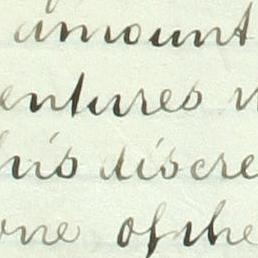 amount
entures
his discre
one of the